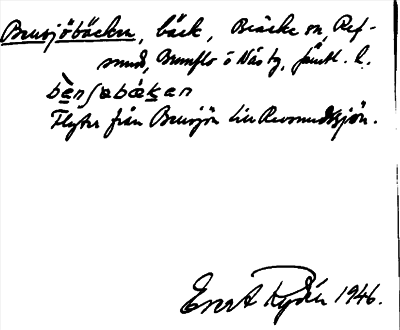 Bensjöbäcken, bäck, Bräcke sn, Ref-
sund, Brunflo o Näs tg, Jämtl. l.
Flyter från Bensjön till Revsundssjön.
Evert Rydén 1946.